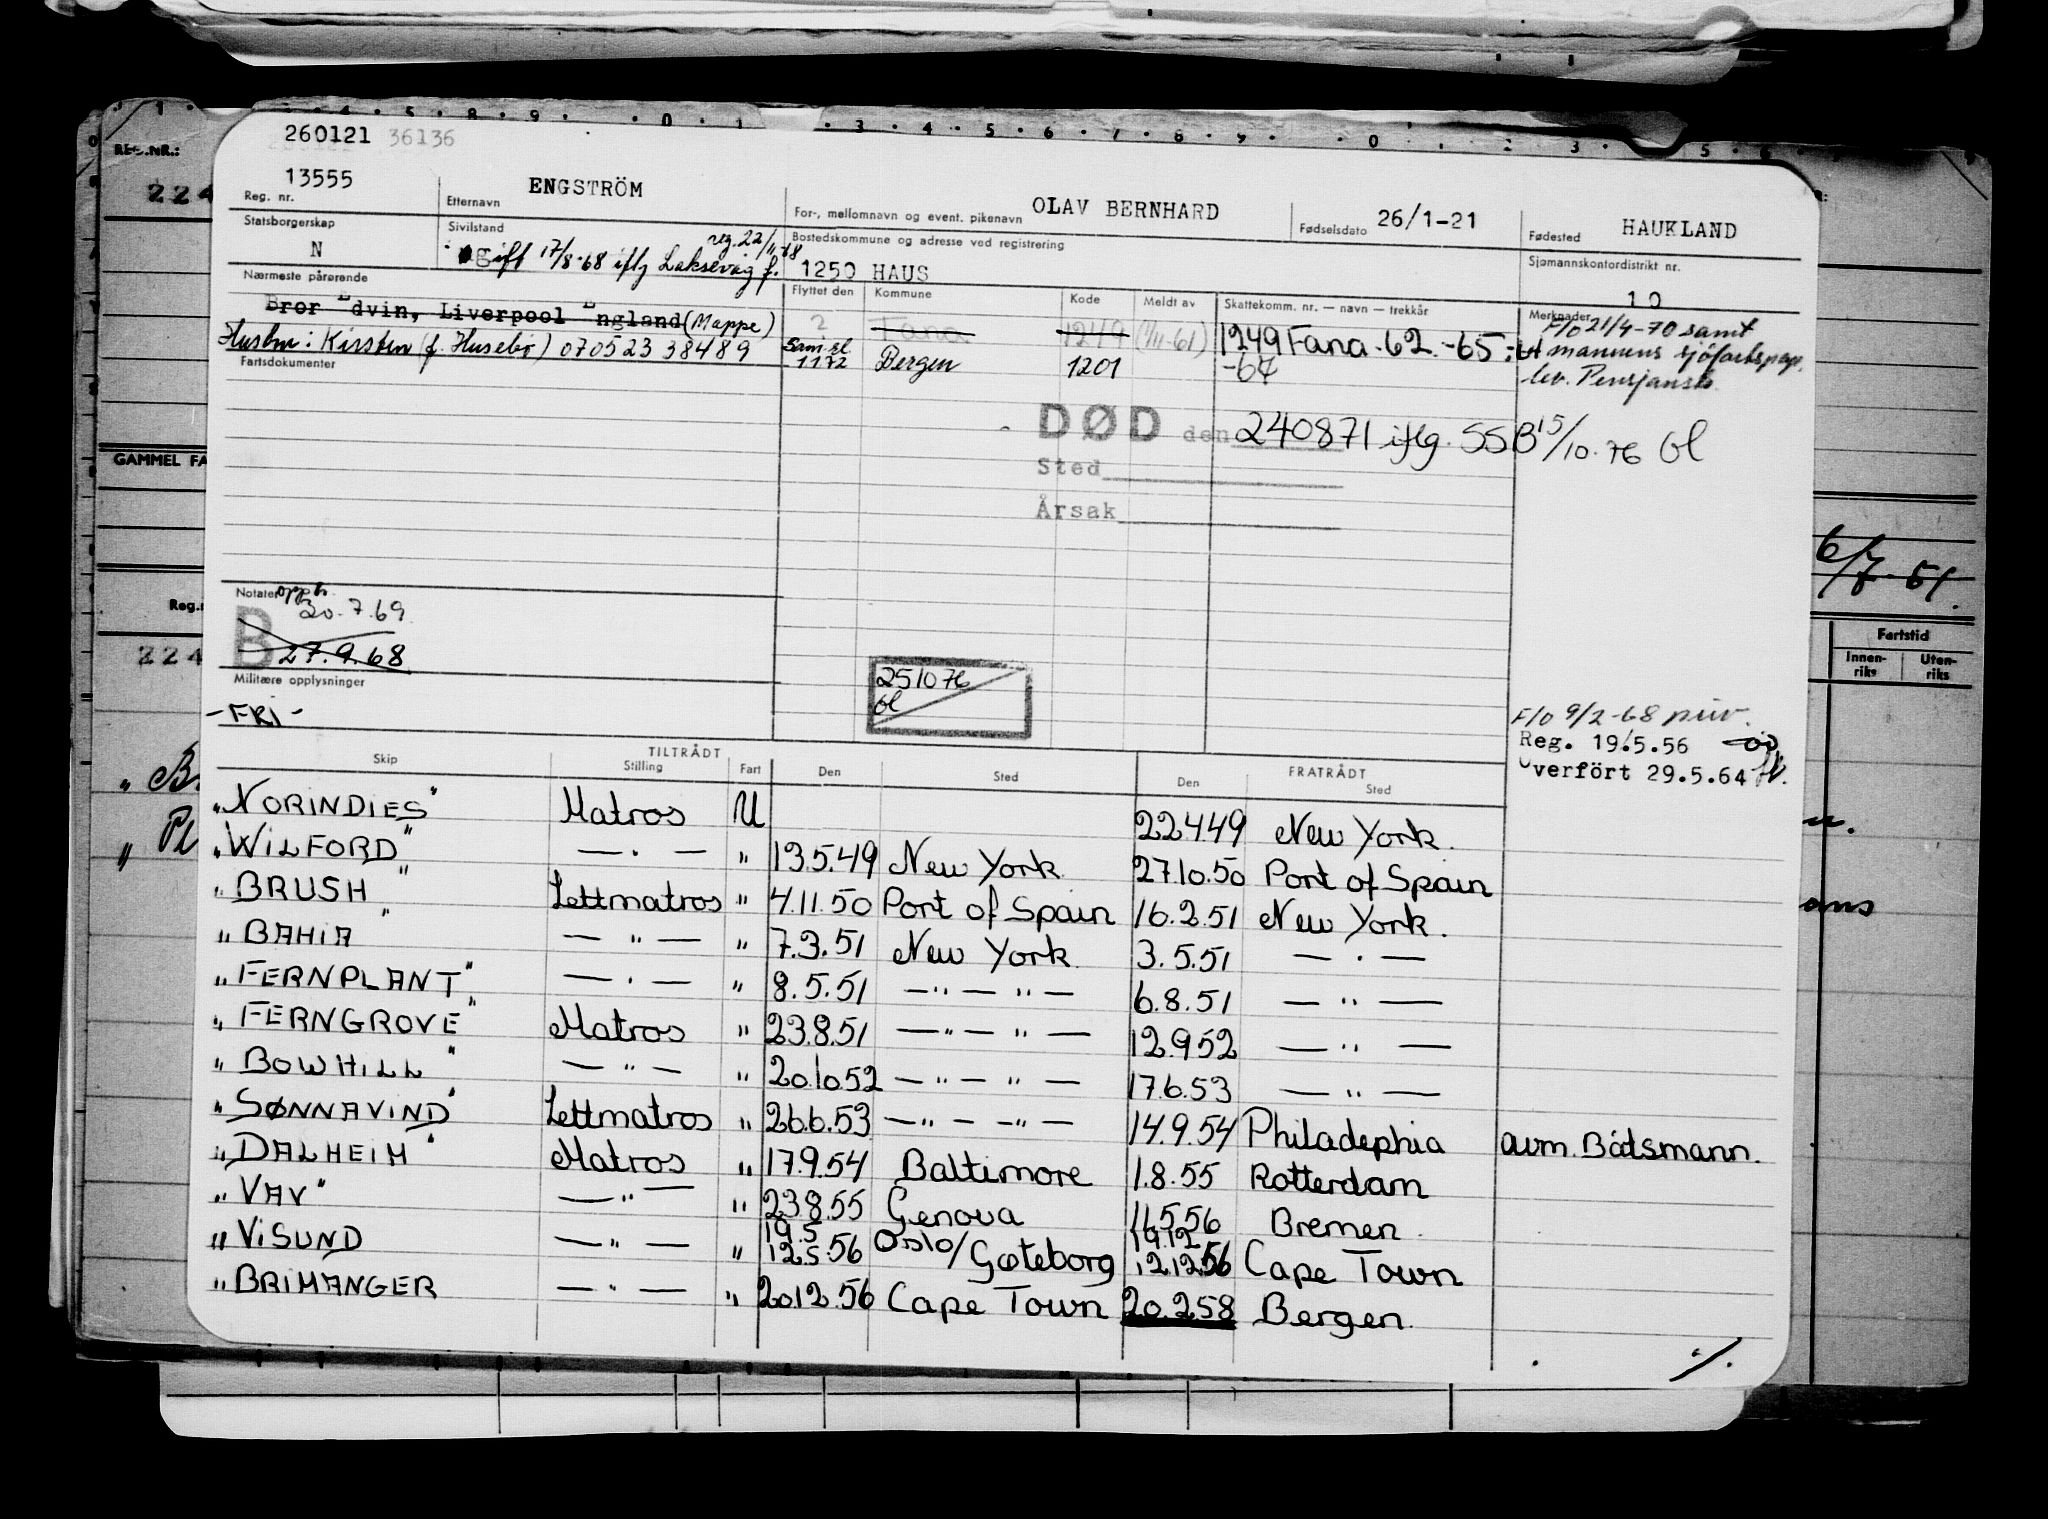 260121 36136
13555 ENGSTRÖM OLAV BERNHARD 26/1-21 HAUKLAND
Reg. nr. Etternavn For-, mellomnavn og event. pikenavn Fødselsdato Fødested
Statsborgerskap Sivilstand Bostedskommune og adresse ved registrering Sjømannskontordistrikt nr.
reg. 22/11-68
N gift 17/8-68 iflg Laksevåg f. 1250 HAUS 10
Nærmeste pårørende Flyttet den Kommune Kode Meldt av Skattekomm. nr. — navn — trekkår Merknader
Bror Edvin, Liverpool England (Mappe) 2 Fana 1249 (1/11-61) 1249 Fana -62 -65; F/o 21/4-70 samt
Hustru: Kirsten (f. Husebø) 070523 38489 Sam.sl. 1172 Bergen 1201 -64 mannens sjøfartspap.
lev. Pensjonsk.
Fartsdokumenter
DØD den 240871 iflg. SSB 15/10.76 Gl
Sted
Årsak
Notater opph.
20.7.69
B 27.9.68
251076
Gl
Militære opplysninger
-FRI-
F/o 9/2-68 priv.
Reg. 19.5.56
Overfört 29.5.64
TILTRÅDT FRATRÅDT
Skip Stilling Fart Den Sted Den Sted
"NORINDIES" Matros U 22.4.49 New York.
"WILFORD" — " — " 13.5.49 New York 27.10.50 Port of Spain
"BRUSH" Lettmatros " 4.11.50 Port of Spain 16.2.51 New York.
"BAHIA" — " — " 7.3.51 New York 3.5.51 — " —
"FERNPLANT" — " — " 8.5.51 — " — " — 6.8.51 — " —
"FERNGROVE" Matros " 23.8.51 — " — " — 12.9.52 — " —
"BOWHILL" — " — " 20.10.52 — " — " — 17.6.53 — " —
"SØNNAVIND" Lettmatros " 26.6.53 — " — " — 14.9.54 Philadephia avm. Båtsmann.
"DALHEIM" Matros " 17.9.54 Baltimore 1.8.55 Rotterdam
"VAV" — " — " 23.8.55 Genova 11.5.56 Bremen
19.5 19.12
"VISUND — " — " 12.5.56 Oslo/Gøteborg 12.12.56 Cape Town
"BRIMANGER — " — " 20.12.56 Cape Town 20.2.58 Bergen.
./.
REG.NR.:
224
GAMMEL FA
6/7-51.
Reg.
224
Fartstid
Innen-
riks
Uten-
riks